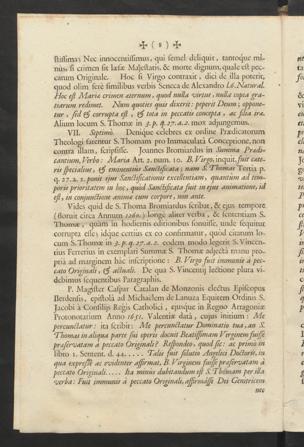 ✠ ( 8 ) ✠
stissima? Nec innocentissimus, qui semel deliquit, tantoque mi-
nus si crimen sit læsæ Majestatis, & morte dignum, quale est pec-
catum Originale. Hoc si Virgo contraxit, dici de illa poterit,
quod olim ferè similibus verbis Seneca de Alexandro l.6. Natural.
Hoc est Mariæ crimen æternum, quod nulla virtus, nulla copia gra-
tiarum redimet. Nam quoties quis dixerit: peperit Deum; oppone-
tur, sed & corrupta est, & tota in peccatis concepta, ac filia iræ.
Alium locum S. Thomæ in 3. p. q. 27. a. 2. mox adjungemus.
VII. Septimò. Denique celebres ex ordine Prædicatorum
Theologi fatentur S. Thomam pro Immaculata Conceptione, non
contra illam, scripsisse. Joannes Bromiardus in Summa Prædi-
cantium, Verbo: Maria Art. 2. num. 10. B. Virgo, inquit, fuit cæte-
ris specialius, & eminentius Sanctificata; nam S. Thomas Tertia p.
q. 27. a. 2. ponit ejus Sanctificationis excellentiam, quantum ad tem-
poris prioritatem in hoc, quod Sanctificata fuit in ejus animatione, id
est, in conjunctione animæ cum corpore, non ante.
Vides quid de S. Thoma Bromiardus scribat, & ejus tempore
(floruit circa Annum 1260.) longè aliter verba, & sententiam S.
Thomæ, quàm in hodiernis editionibus sonuisse, unde sequitur
corrupta esse; idque certius ex eo confirmatur, quòd citatum lo-
cum S. Thomæ in 3. p. q. 27. a. 2. eodem modo legerit S. Vincen-
tius Ferrerius in exemplari Summæ S. Thomæ adjectâ manu pro-
priâ ad marginem hâc inscriptione: B. Virgo fuit immunis à pec-
cato Originali, & actuali. De qua S. Vincentij lectione plura vi-
debimus sequentibus Paragraphis.
P. Magister Caspar Catalan de Monzonis electus Episcopus
Ilerdensis, epistolâ ad Michaëlem de Lanuza Equitem Ordinis S.
Jacobi à Consilijs Regis Catholici, ejusque in Regno Arragoniæ
Protonotarium Anno 1651. Valentiæ datâ, cujus initium: Me
percunctatur: ita scribit: Me percunctatur Dominatio tua, an S.
Thomas in aliqua parte sui operis docuit Beatissimam Virginem fuisse
præservatam à peccato Originali? Respondeo, quod sic: ac primò in
libro 1. Sentent. d. 44. . . . . Talis fuit solutio Angelici Doctoris, in
qua expressè ac evidenter affirmat, B. Virginem fuisse præservatam à
peccato Originali. . . . . Ita minus dubitandum est S. Thomam per ista
verba: Fuit immunis à peccato Originali, affirmasse Dei Genitricem
nec